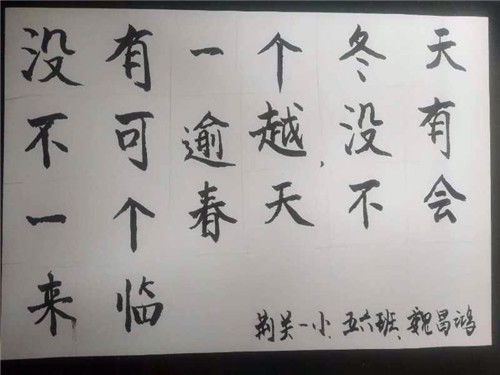 没有一个冬天
不可逾越,没有
一个春天不会
来临
荆关一小、五六班、魏昌鸿